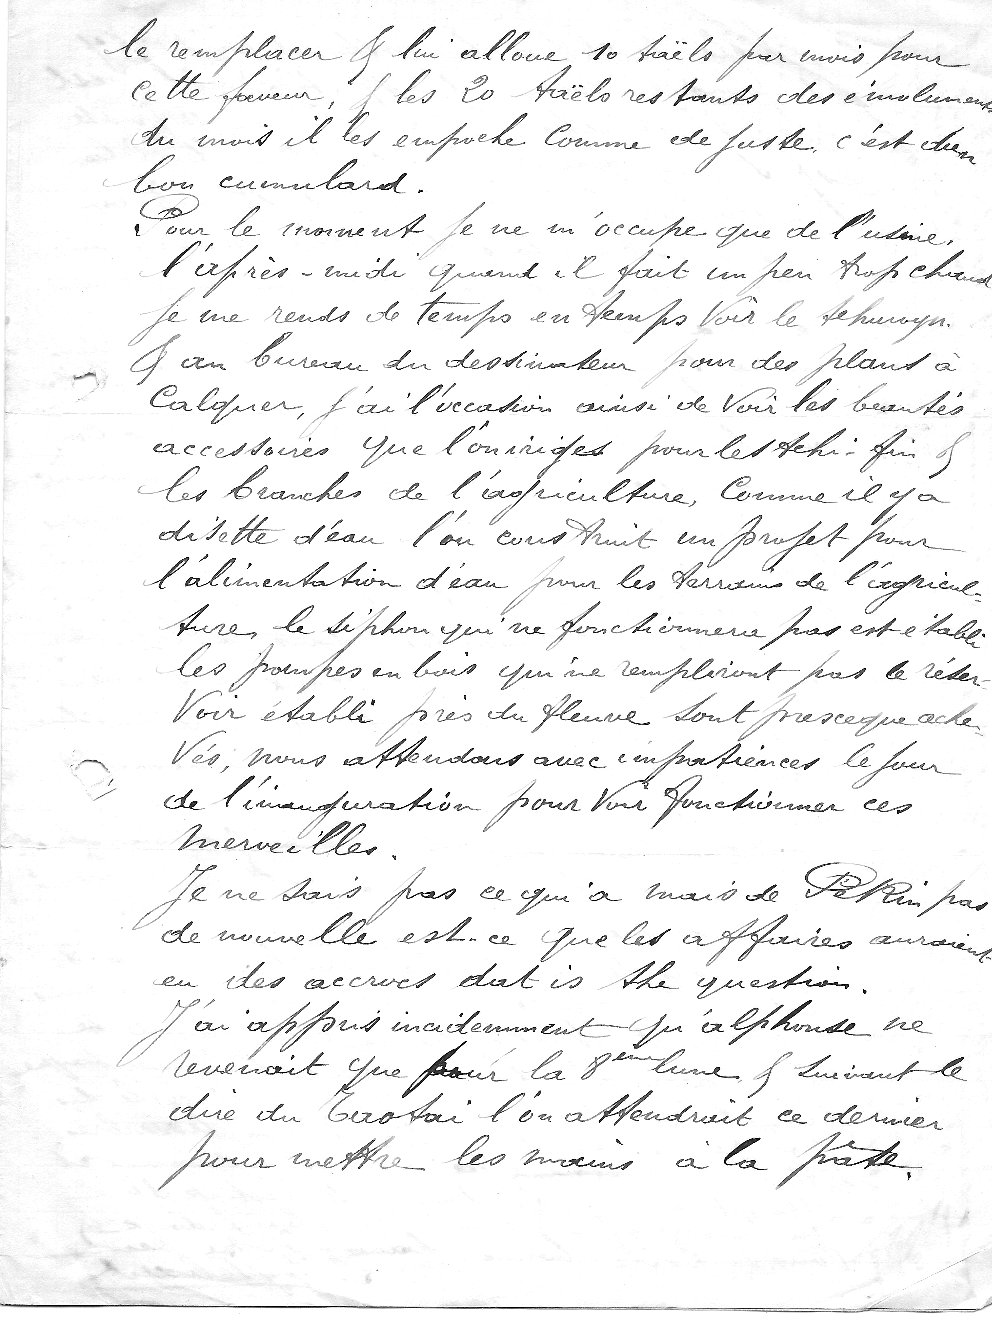 le remplacer & lui alloue 10 taëls par mois pour
cette faveur, & les 20 taëls restants des émoluments
du mois il les empoche comme de juste, c'est d'un
bon cumulard.
Pour le moment je ne m'occupe que de l'usine,
l'après-midi quand il fait un peu trop chaud
je me rends de temps en temps voir le
& au bureau du dessinateur pour des plans à
calquer, j'ai l'occasion ainsi de voir les beautés
accessoires que l'on iriges pour les tchi-fin &
les branches de l'agriculture, comme il y a
disette d'eau l'on construit un projet pour
l'alimentation d'eau pour les terrains de l'agricul-
ture, le siphon qui ne fonctionnera pas est établi
les pompes en bois qui ne rempliront pas le réser-
voir établi près du fleuve sont presceque ache-
vés, nous attendons avec impatiences le jour
de l'inauguration pour voir fonctionner ces
merveilles.
Je ne sais pas ce qui a mais de Pékin pas
de nouvelle est-ce que les affaires auraient
eu des accrocs dat is the question.
J'ai appris incidemment qu'alphonse ne
revenait que pour la 8ème lune, & suivant le
dire du Taotai l'on attendrait ce dernier
pour mettre les mains à la pâte.